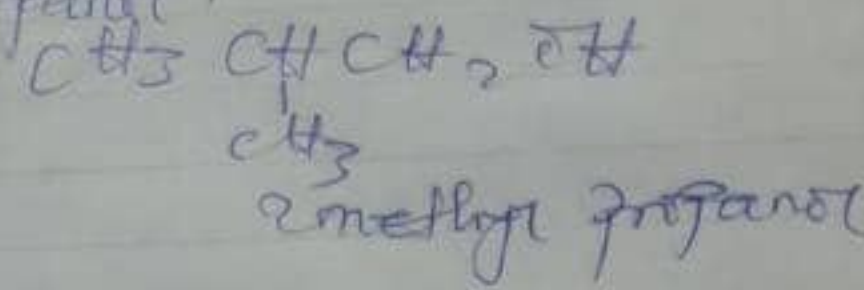 CH3 CH CH2 OH
CH3
2 methyl propanol